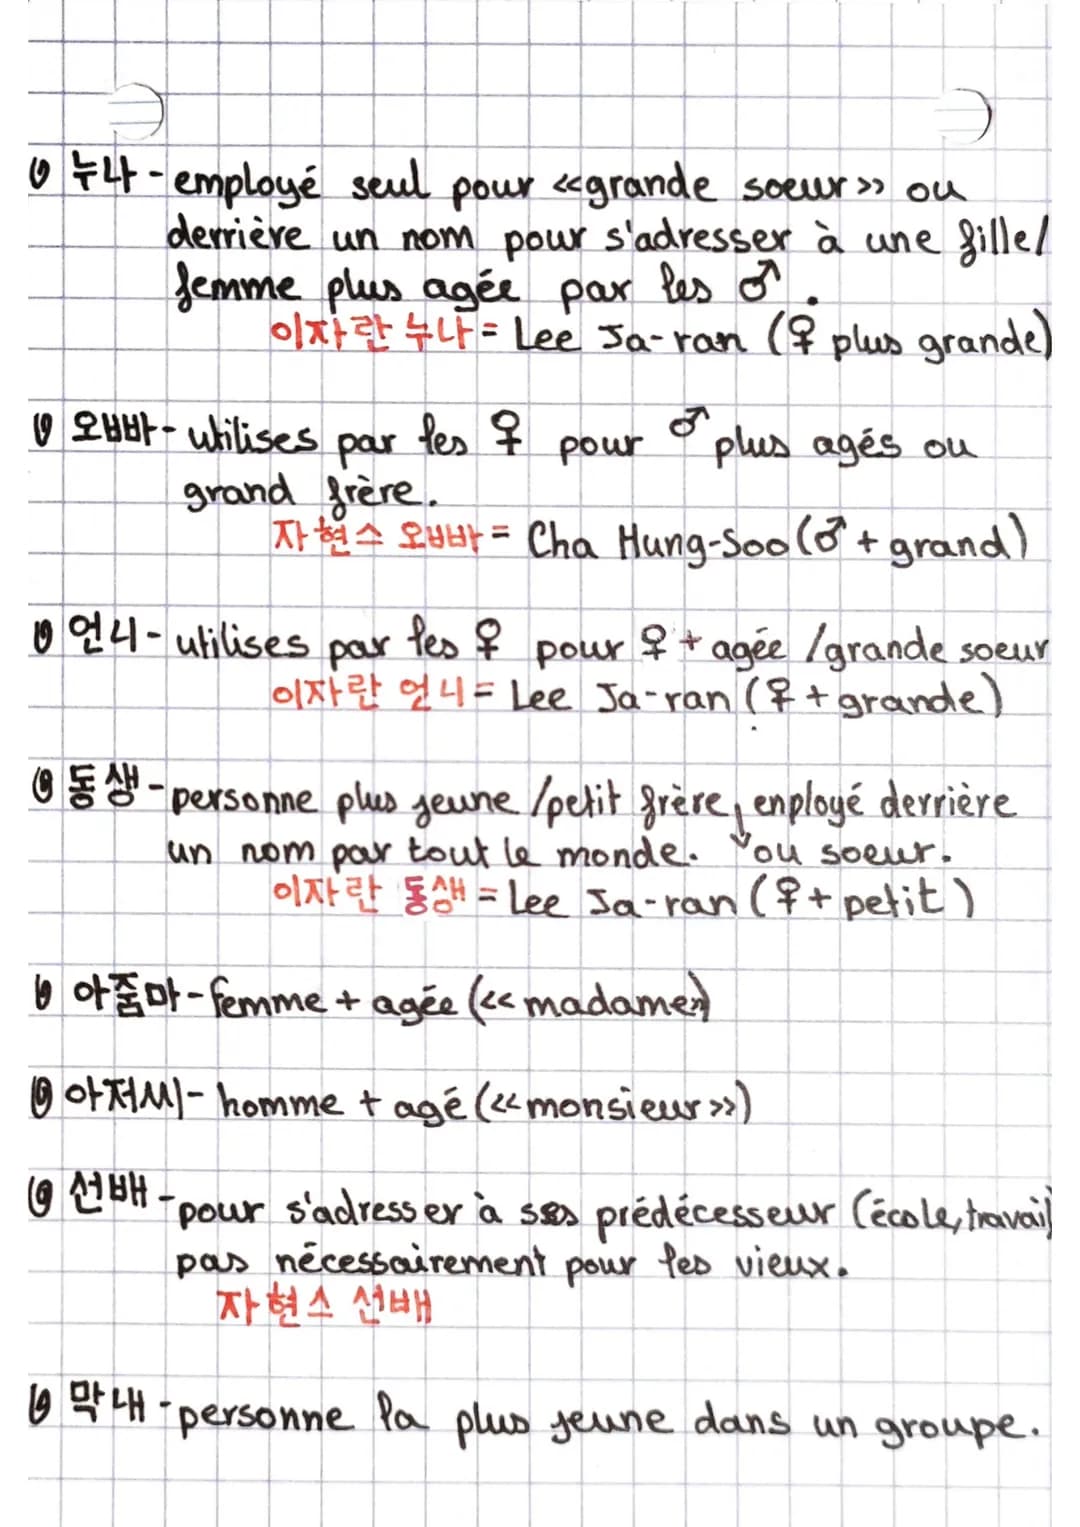 누나 - employé seul pour <<grande soeur>> ou
derrière un nom pour s'adresser à une fille/
femme plus agée par les ♂.
이자란 누나 = Lee Ja-ran (♀ plus grande)
오빠 - utilises par les ♀ pour ♂ plus agés ou
grand frère.
자현스 오빠 = Cha Hung-Soo (♂ + grand)
언니 - utilises par les ♀ pour ♀ + agée / grande soeur
이자란 언니 = Lee Ja-ran (♀ + grande)
동생 - personne plus jeune / petit frère, enployé derrière
un nom par tout le monde. ou soeur.
이자란 동생 = Lee Ja-ran (♀ + petit)
아줌마 - femme + agée (<<madame>>)
아저씨 - homme + agé (<<monsieur>>)
선배 - pour s'adresser à ses prédécesseur (école, travail)
pas nécessairement pour les vieux.
자현스 선배
막내 - personne la plus jeune dans un groupe.